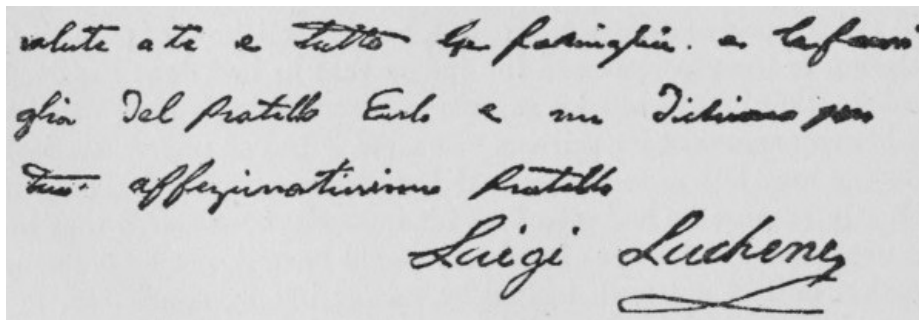 salute a te e tutto la famiglia. a la fami
glia Del fratello Carlo e mi Dichiaro per
tuo. affezinatissimo fratello
Luigi Lucheni